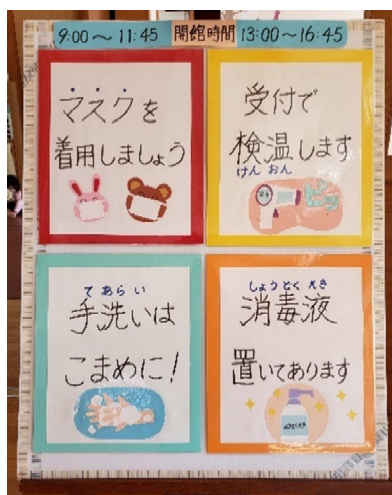 9:00～11:45 開館時間 13:00～16:45
マスクを
着用しましょう
受付で
検温します
けん おん
ピッ
て あら い
手洗いは
こまめに！
しょう どく えき
消毒液
置いてあります